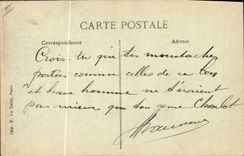 CARTE POSTALE
Correspondance
Adresse
Crois-tu que des moustaches
portées comme celles de ce bon
et beau homme ne t'iraient
pas mieux que ton genre Charlot
Imp. E. Le Deley, Paris